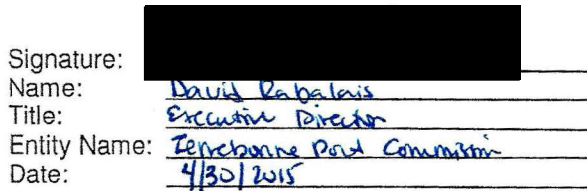 Signature:
Name: David Rabalais
Title: Executive Director
Entity Name: Terrebonne Port Commission
Date: 4/30/2015